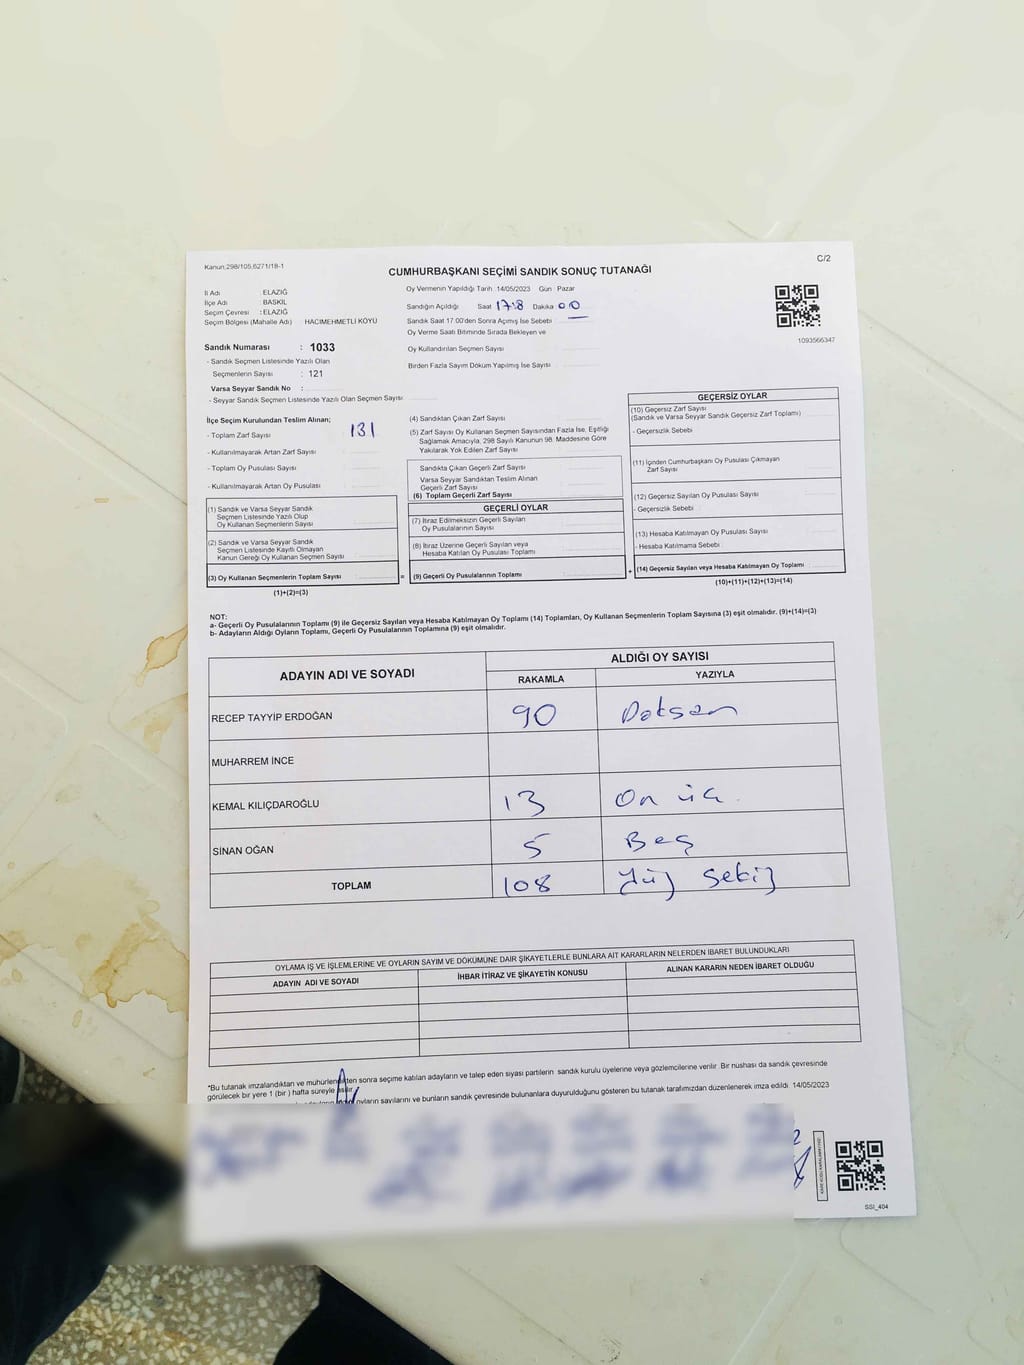 Kanun;298/105,6271/18-1
C/2
CUMHURBAŞKANI SEÇİMİ SANDIK SONUÇ TUTANAĞI
İl Adı : ELAZIĞ
İlçe Adı : BASKİL
Seçim Çevresi : ELAZIĞ
Seçim Bölgesi (Mahalle Adı) : HACIMEHMETLİ KÖYÜ
Oy Vermenin Yapıldığı Tarih :14/05/2023 Gün : Pazar
Sandığın Açıldığı Saat 17:8 Dakika 00
Sandık Saat 17.00'den Sonra Açımış İse Sebebi
Oy Verme Saati Bitiminde Sırada Bekleyen ve
Oy Kullandırılan Seçmen Sayısı
Birden Fazla Sayım Döküm Yapılmış İse Sayısı
1093566347
Sandık Numarası : 1033
- Sandık Seçmen Listesinde Yazılı Olan
Seçmenlerin Sayısı : 121
Varsa Seyyar Sandık No :
- Seyyar Sandık Seçmen Listesinde Yazılı Olan Seçmen Sayısı
İlçe Seçim Kurulundan Teslim Alınan;
- Toplam Zarf Sayısı 131
- Kullanılmayarak Artan Zarf Sayısı
- Toplam Oy Pusulası Sayısı
- Kullanılmayarak Artan Oy Pusulası
(1) Sandık ve Varsa Seyyar Sandık
Seçmen Listesinde Yazılı Olup
Oy Kullanan Seçmenlerin Sayısı
(2) Sandık ve Varsa Seyyar Sandık
Seçmen Listesinde Kayıtlı Olmayan
Kanun Gereği Oy Kullanan Seçmen Sayısı
(3) Oy Kullanan Seçmenlerin Toplam Sayısı
(1)+(2)=(3)
=
(4) Sandıktan Çıkan Zarf Sayısı
(5) Zarf Sayısı Oy Kullanan Seçmen Sayısından Fazla İse, Eşitliği
Sağlamak Amacıyla, 298 Sayılı Kanunun 98. Maddesine Göre
Yakılarak Yok Edilen Zarf Sayısı
Sandıkta Çıkan Geçerli Zarf Sayısı
Varsa Seyyar Sandıktan Teslim Alınan
Geçerli Zarf Sayısı
(6) Toplam Geçerli Zarf Sayısı
GEÇERLİ OYLAR
(7) İtiraz Edilmeksizin Geçerli Sayılan
Oy Pusulalarının Sayısı
(8) İtiraz Üzerine Geçerli Sayılan veya
Hesaba Katılan Oy Pusulası Toplamı
(9) Geçerli Oy Pusulalarının Toplamı
+
GEÇERSİZ OYLAR
(10) Geçersiz Zarf Sayısı
(Sandık ve Varsa Seyyar Sandık Geçersiz Zarf Toplamı)
- Geçersizlik Sebebi
(11) İçinden Cumhurbaşkanı Oy Pusulası Çıkmayan
Zarf Sayısı
(12) Geçersiz Sayılan Oy Pusulası Sayısı
- Geçersizlik Sebebi
(13) Hesaba Katılmayan Oy Pusulası Sayısı
- Hesaba Katılmama Sebebi
(14) Geçersiz Sayılan veya Hesaba Katılmayan Oy Toplamı
(10)+(11)+(12)+(13)=(14)
NOT:
a- Geçerli Oy Pusulalarının Toplamı (9) ile Geçersiz Sayılan veya Hesaba Katılmayan Oy Toplamı (14) Toplamları, Oy Kullanan Seçmenlerin Toplam Sayısına (3) eşit olmalıdır. (9)+(14)=(3)
b- Adayların Aldığı Oyların Toplamı, Geçerli Oy Pusulalarının Toplamına (9) eşit olmalıdır.
ADAYIN ADI VE SOYADI ALDIĞI OY SAYISI
RAKAMLA YAZIYLA
RECEP TAYYİP ERDOĞAN 90 Doksan
MUHARREM İNCE
KEMAL KILIÇDAROĞLU 13 On üç
SİNAN OĞAN 5 Beş
TOPLAM 108 Yüz sekiz
OYLAMA İŞ VE İŞLEMLERİNE VE OYLARIN SAYIM VE DÖKÜMÜNE DAİR ŞİKAYETLERLE BUNLARA AİT KARARLARIN NELERDEN İBARET BULUNDUKLARI
ADAYIN ADI VE SOYADI İHBAR İTİRAZ VE ŞİKAYETİN KONUSU ALINAN KARARIN NEDEN İBARET OLDUĞU
*Bu tutanak imzalandıktan ve mühürlendikten sonra seçime katılan adayların ve talep eden siyasi partilerin sandık kurulu üyelerine veya gözlemcilerine verilir. Bir nüshası da sandık çevresinde
görülecek bir yere 1 (bir) hafta süreyle asılır.
oyların sayılarını ve bunların sandık çevresinde bulunanlara duyurulduğunu gösteren bu tutanak tarafımızdan düzenlenerek imza edildi. 14/05/2023
SSI_404